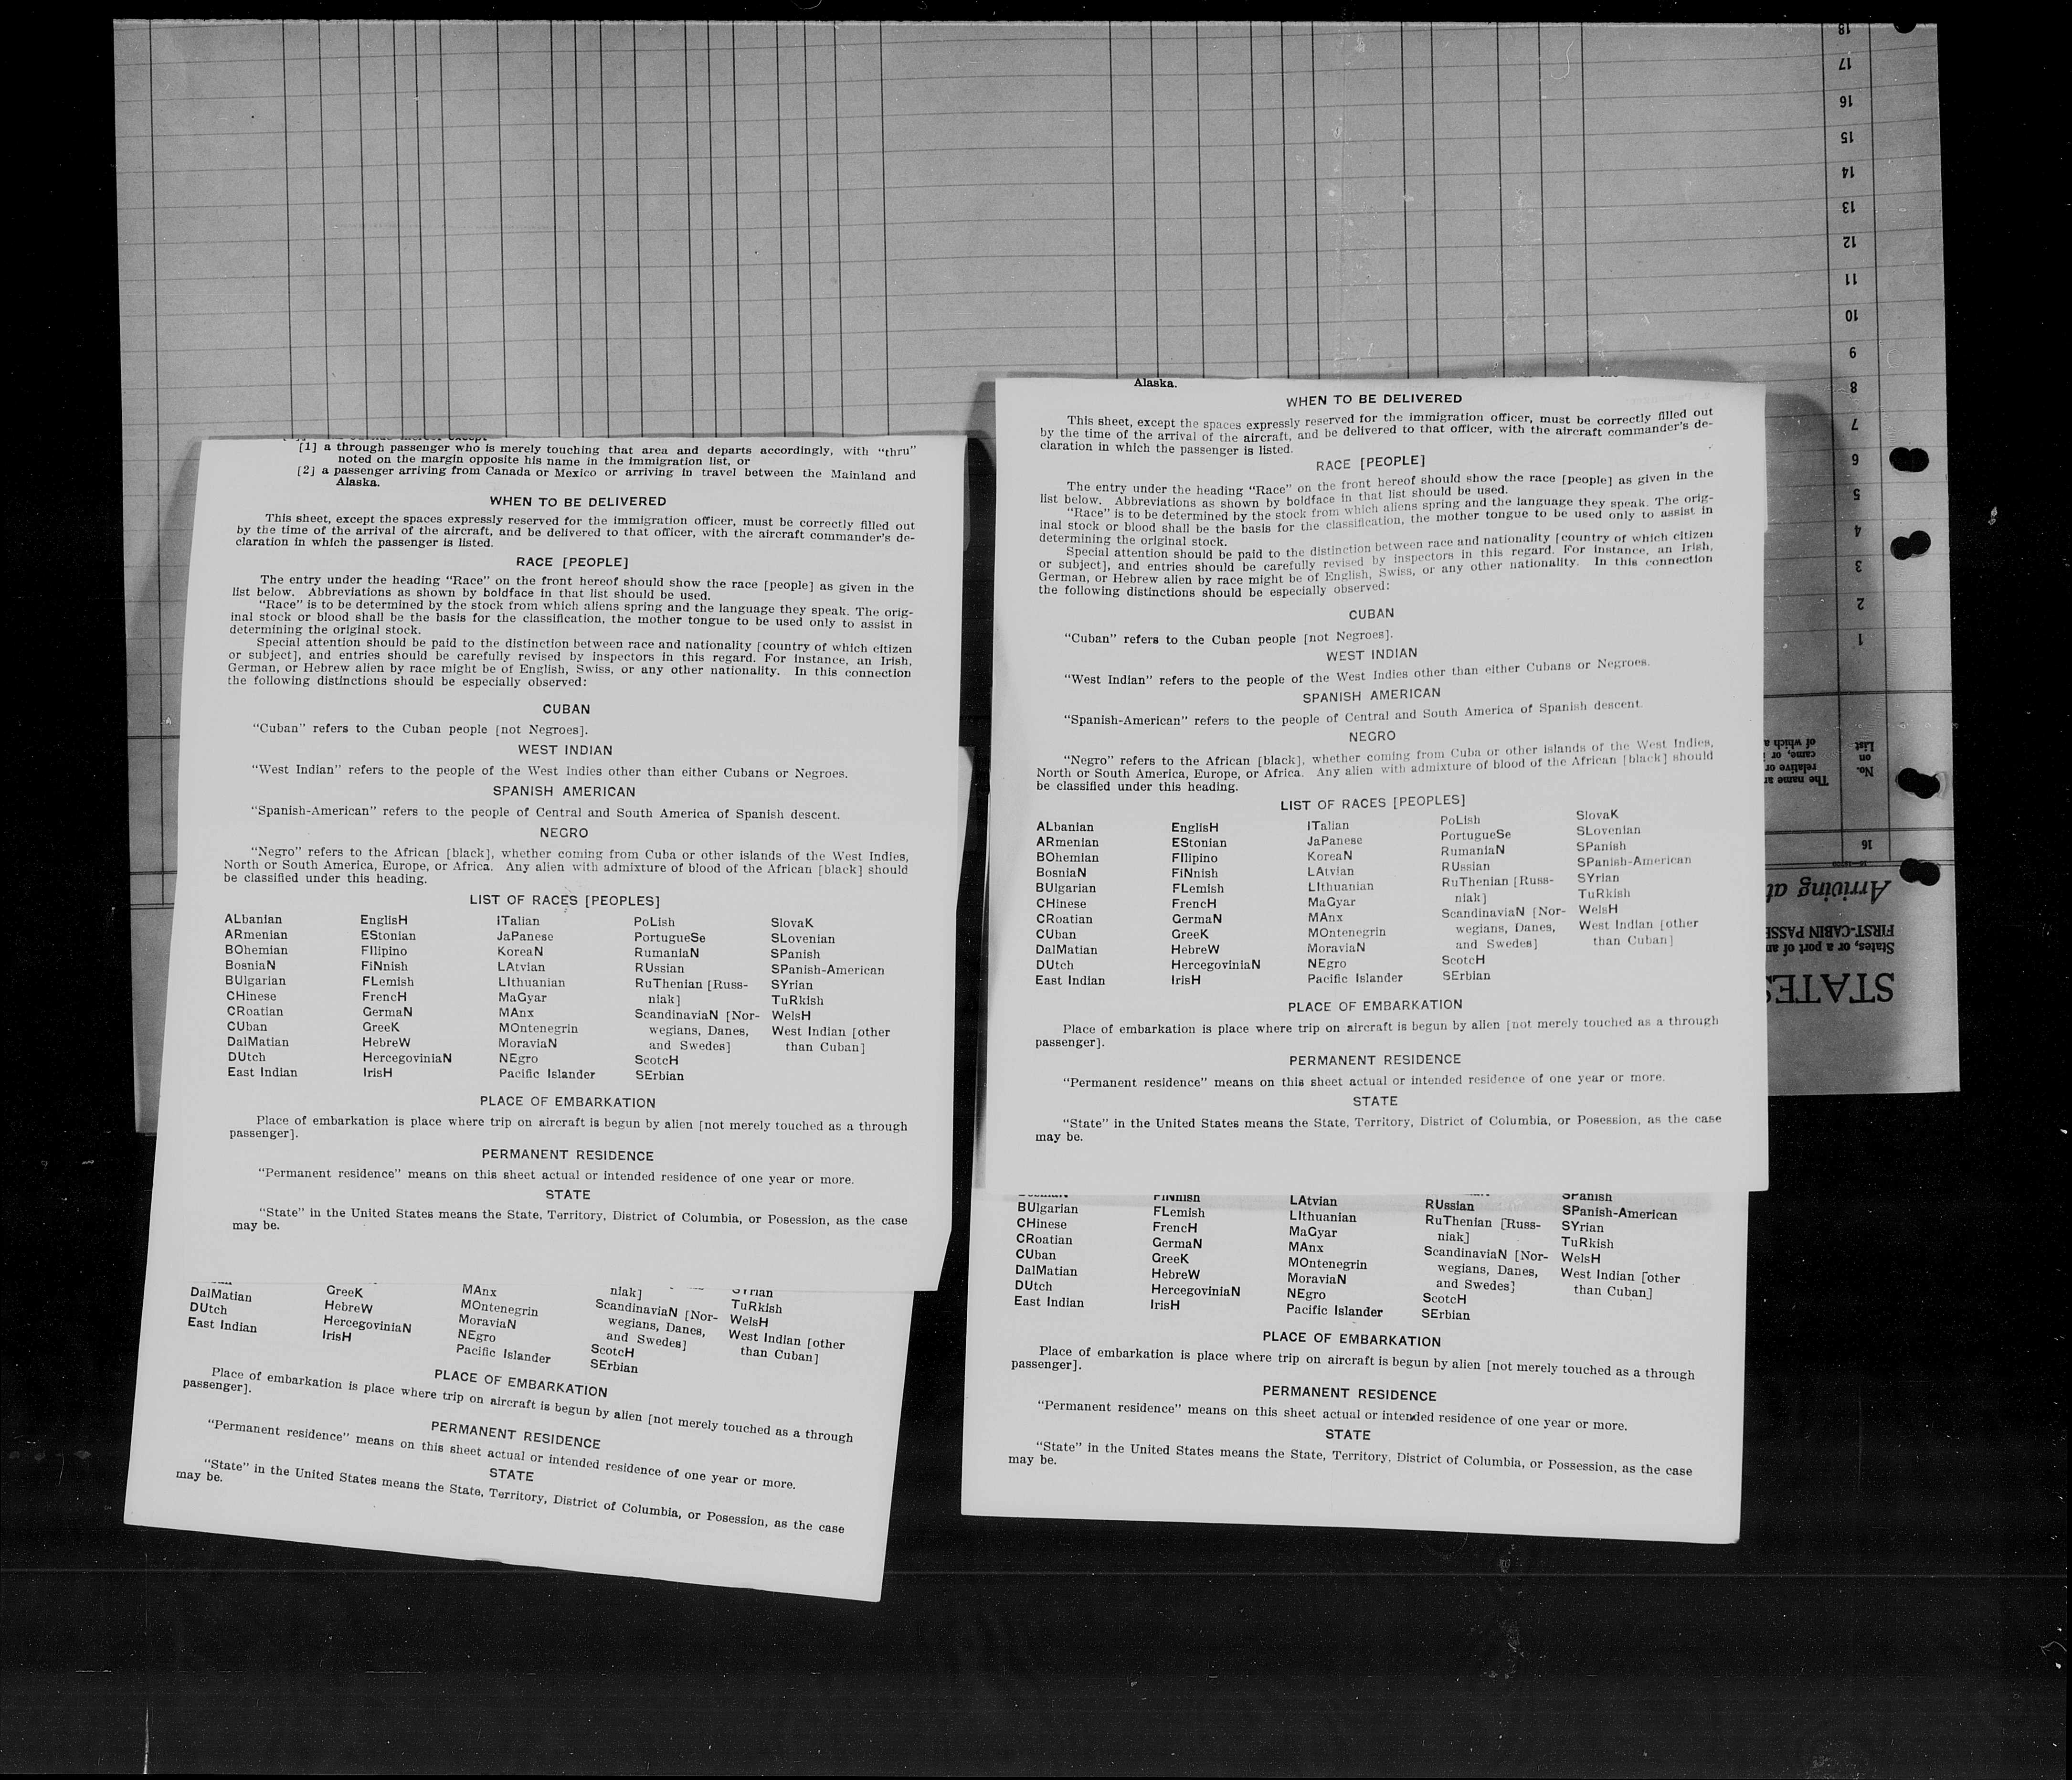 [1] a through passenger who is merely touching that area and departs accordingly, with “thru”
noted on the margin opposite his name in the immigration list, or
[2] a passenger arriving from Canada or Mexico or arriving in travel between the Mainland and
Alaska.
WHEN TO BE DELIVERED
This sheet, except the spaces expressly reserved for the immigration officer, must be correctly filled out
by the time of the arrival of the aircraft, and be delivered to that officer, with the aircraft commander's de-
claration in which the passenger is listed.
RACE [PEOPLE]
The entry under the heading “Race” on the front hereof should show the race [people] as given in the
list below. Abbreviations as shown by boldface in that list should be used.
“Race” is to be determined by the stock from which aliens spring and the language they speak. The orig-
inal stock or blood shall be the basis for the classification, the mother tongue to be used only to assist in
determining the original stock.
Special attention should be paid to the distinction between race and nationality [country of which citizen
or subject], and entries should be carefully revised by inspectors in this regard. For instance, an Irish,
German, or Hebrew alien by race might be of English, Swiss, or any other nationality. In this connection
the following distinctions should be especially observed:
CUBAN
“Cuban” refers to the Cuban people [not Negroes].
WEST INDIAN
“West Indian” refers to the people of the West Indies other than either Cubans or Negroes.
SPANISH AMERICAN
“Spanish-American” refers to the people of Central and South America of Spanish descent.
NEGRO
“Negro” refers to the African [black], whether coming from Cuba or other islands of the West Indies,
North or South America, Europe, or Africa. Any alien with admixture of blood of the African [black] should
be classified under this heading.
LIST OF RACES [PEOPLES]
ALbanian EnglisH ITalian PoLish SlovaK
ARmenian EStonian JaPanese PortugueSe SLovenian
BOhemian FIlipino KoreaN RumaniaN SPanish
BosniaN FiNnish LAtvian RUssian SPanish-American
BUlgarian FLemish LIthuanian RuThenian [Russ- SYrian
CHinese FrencH MaGyar niak] TuRkish
CRoatian GermaN MAnx ScandinaviaN [Nor- WelsH
CUban GreeK MOntenegrin wegians, Danes, West Indian [other
DalMatian HebreW MoraviaN and Swedes] than Cuban]
DUtch HercegoviniaN NEgro ScotcH
East Indian IrisH Pacific Islander SErbian
PLACE OF EMBARKATION
Place of embarkation is place where trip on aircraft is begun by alien [not merely touched as a through
passenger].
PERMANENT RESIDENCE
“Permanent residence” means on this sheet actual or intended residence of one year or more.
STATE
“State” in the United States means the State, Territory, District of Columbia, or Posession, as the case
may be.
GreeK MAnx niak] SYrian
DalMatian HebreW MOntenegrin ScandinaviaN [Nor- TuRkish
DUtch HercegoviniaN MoraviaN wegians, Danes, WelsH
East Indian IrisH NEgro and Swedes] West Indian [other
Pacific Islander ScotcH than Cuban]
SErbian
PLACE OF EMBARKATION
Place of embarkation is place where trip on aircraft is begun by alien [not merely touched as a through
passenger].
PERMANENT RESIDENCE
“Permanent residence” means on this sheet actual or intended residence of one year or more.
STATE
“State” in the United States means the State, Territory, District of Columbia, or Posession, as the case
may be.
Alaska.
WHEN TO BE DELIVERED
This sheet, except the spaces expressly reserved for the immigration officer, must be correctly filled out
by the time of the arrival of the aircraft, and be delivered to that officer, with the aircraft commander's de-
claration in which the passenger is listed.
RACE [PEOPLE]
The entry under the heading “Race” on the front hereof should show the race [people] as given in the
list below. Abbreviations as shown by boldface in that list should be used.
“Race” is to be determined by the stock from which aliens spring and the language they speak. The orig-
inal stock or blood shall be the basis for the classification, the mother tongue to be used only to assist in
determining the original stock.
Special attention should be paid to the distinction between race and nationality [country of which citizen
or subject], and entries should be carefully revised by inspectors in this regard. For instance, an Irish,
German, or Hebrew alien by race might be of English, Swiss, or any other nationality. In this connection
the following distinctions should be especially observed:
CUBAN
“Cuban” refers to the Cuban people [not Negroes].
WEST INDIAN
“West Indian” refers to the people of the West Indies other than either Cubans or Negroes.
SPANISH AMERICAN
“Spanish-American” refers to the people of Central and South America of Spanish descent.
NEGRO
“Negro” refers to the African [black], whether coming from Cuba or other islands of the West Indies,
North or South America, Europe, or Africa. Any alien with admixture of blood of the African [black] should
be classified under this heading.
LIST OF RACES [PEOPLES]
ALbanian EnglisH ITalian PoLish SlovaK
ARmenian EStonian JaPanese PortugueSe SLovenian
BOhemian FIlipino KoreaN RumaniaN SPanish
BosniaN FiNnish LAtvian RUssian SPanish-American
BUlgarian FLemish LIthuanian RuThenian [Russ- SYrian
CHinese FrencH MaGyar niak] TuRkish
CRoatian GermaN MAnx ScandinaviaN [Nor- WelsH
CUban GreeK MOntenegrin wegians, Danes, West Indian [other
DalMatian HebreW MoraviaN and Swedes] than Cuban]
DUtch HercegoviniaN NEgro ScotcH
East Indian IrisH Pacific Islander SErbian
PLACE OF EMBARKATION
Place of embarkation is place where trip on aircraft is begun by alien [not merely touched as a through
passenger].
PERMANENT RESIDENCE
“Permanent residence” means on this sheet actual or intended residence of one year or more.
STATE
“State” in the United States means the State, Territory, District of Columbia, or Posession, as the case
may be.
FiNnish LAtvian RUssian SPanish
BUlgarian FLemish LIthuanian RuThenian [Russ- SPanish-American
CHinese FrencH MaGyar niak] SYrian
CRoatian GermaN MAnx ScandinaviaN [Nor- TuRkish
CUban GreeK MOntenegrin wegians, Danes, WelsH
DalMatian HebreW MoraviaN and Swedes] West Indian [other
DUtch HercegoviniaN NEgro ScotcH than Cuban]
East Indian IrisH Pacific Islander SErbian
PLACE OF EMBARKATION
Place of embarkation is place where trip on aircraft is begun by alien [not merely touched as a through
passenger].
PERMANENT RESIDENCE
“Permanent residence” means on this sheet actual or intended residence of one year or more.
STATE
“State” in the United States means the State, Territory, District of Columbia, or Possession, as the case
may be.
STATES
States, or a port of an
FIRST-CABIN PASSE
Arriving at
16
No.
on
List
The name
relative or
came, or
of which a
1
2
3
4
5
6
7
8
9
10
11
12
13
14
15
16
17
18